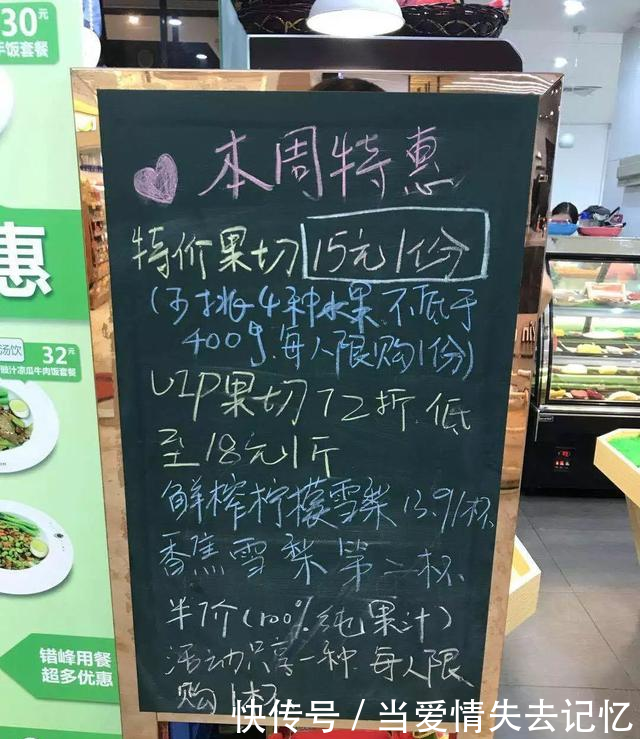 30元
手饭套餐
惠
汤饮
32元
豉汁凉瓜牛肉饭套餐
错峰用餐
超多优惠
本周特惠
特价果切 15元/份
(可挑4种水果.不低于
400g.每人限购1份)
VIP果切72折.低
至18元/斤
鲜榨柠檬雪梨13.9/杯
香蕉雪梨第二杯
半价(100%纯果汁)
活动只享一种.每人限
购1杯
快传号 / 当爱情失去记忆